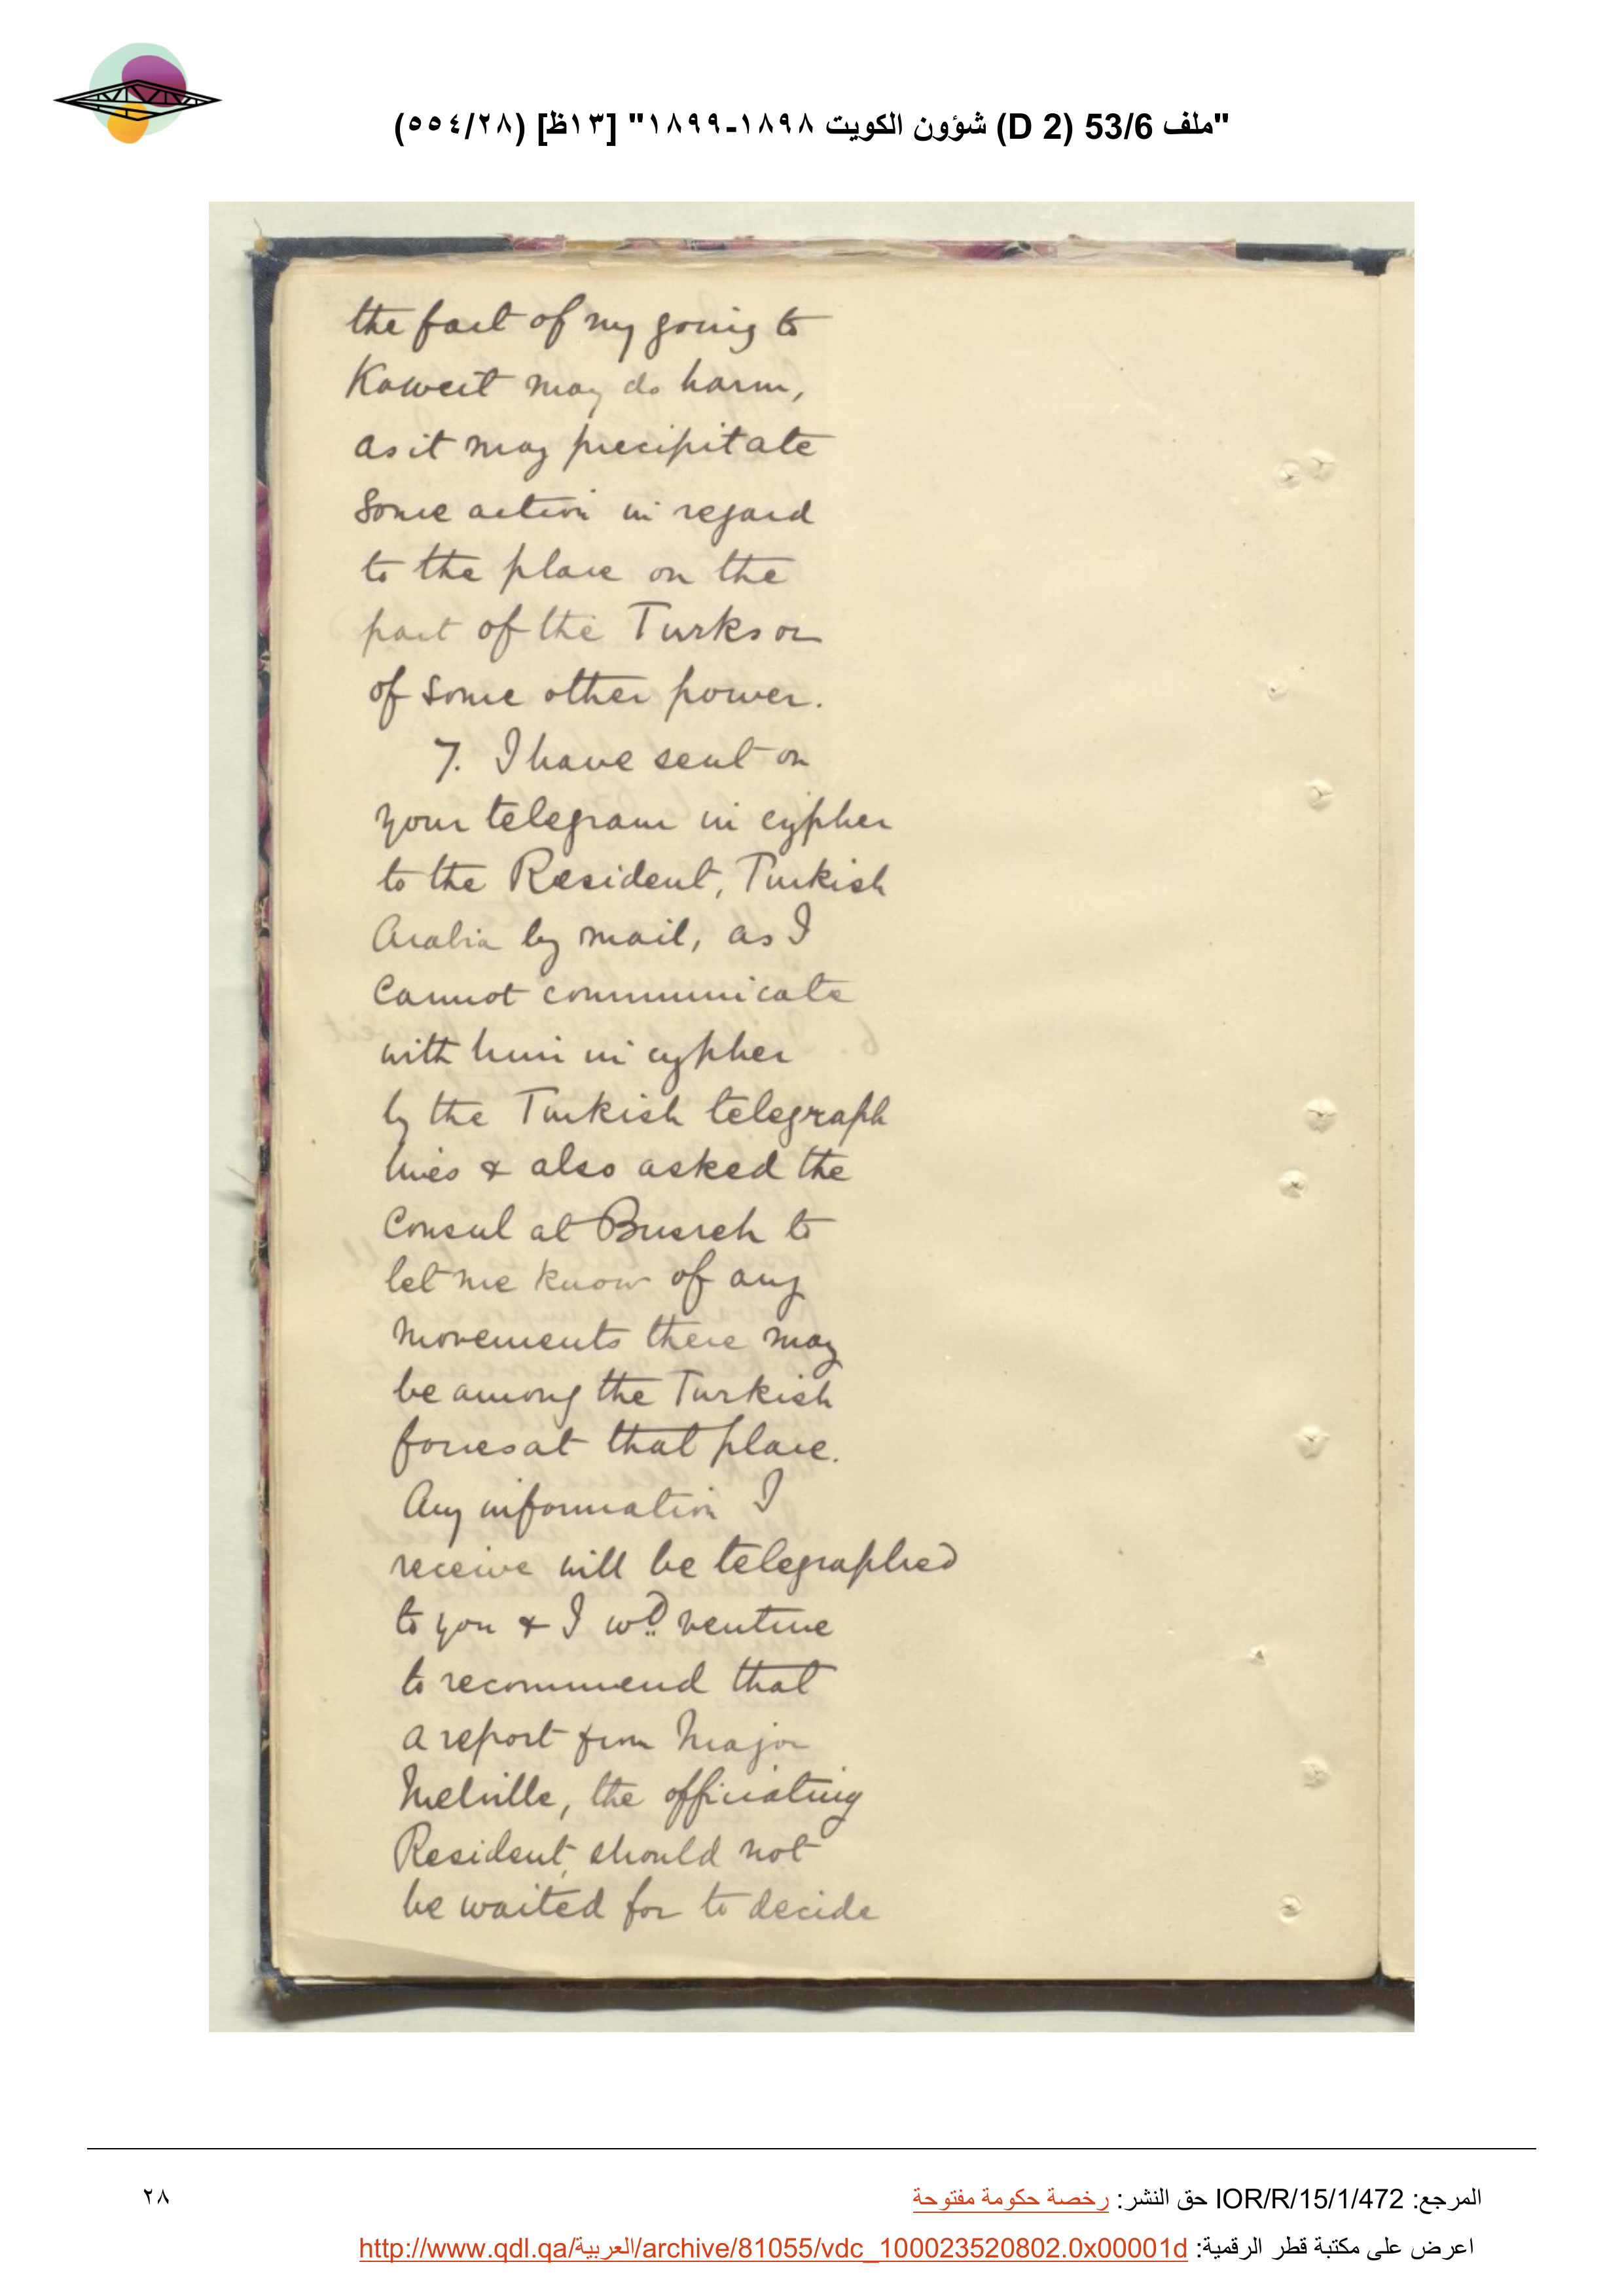 "ملف 53/6 (D 2) شؤون الكويت ١٨٩٨-١٨٩٩" [١٣ظ] (٥٥٤/٢٨)
the fact of my going to
Koweit may do harm,
as it may precipitate
some action in regard
to the place on the
part of the Turks or
of some other power.
7. I have sent on
your telegram in cypher
to the Resident, Turkish
Arabia by mail, as I
cannot communicate
with him in cypher
by the Turkish telegraph
lines & also asked the
Consul at Busreh to
let me know of any
movements there may
be among the Turkish
forces at that place.
Any information I
receive will be telegraphed
to you & I wd venture
to recommend that
a report from Major
Melville, the officiating
Resident, should not
be waited for to decide
المرجع: IOR/R/15/1/472 حق النشر: رخصة حكومة مفتوحة
٢٨
اعرض على مكتبة قطر الرقمية: http://www.qdl.qa/العربية/archive/81055/vdc_100023520802.0x00001d